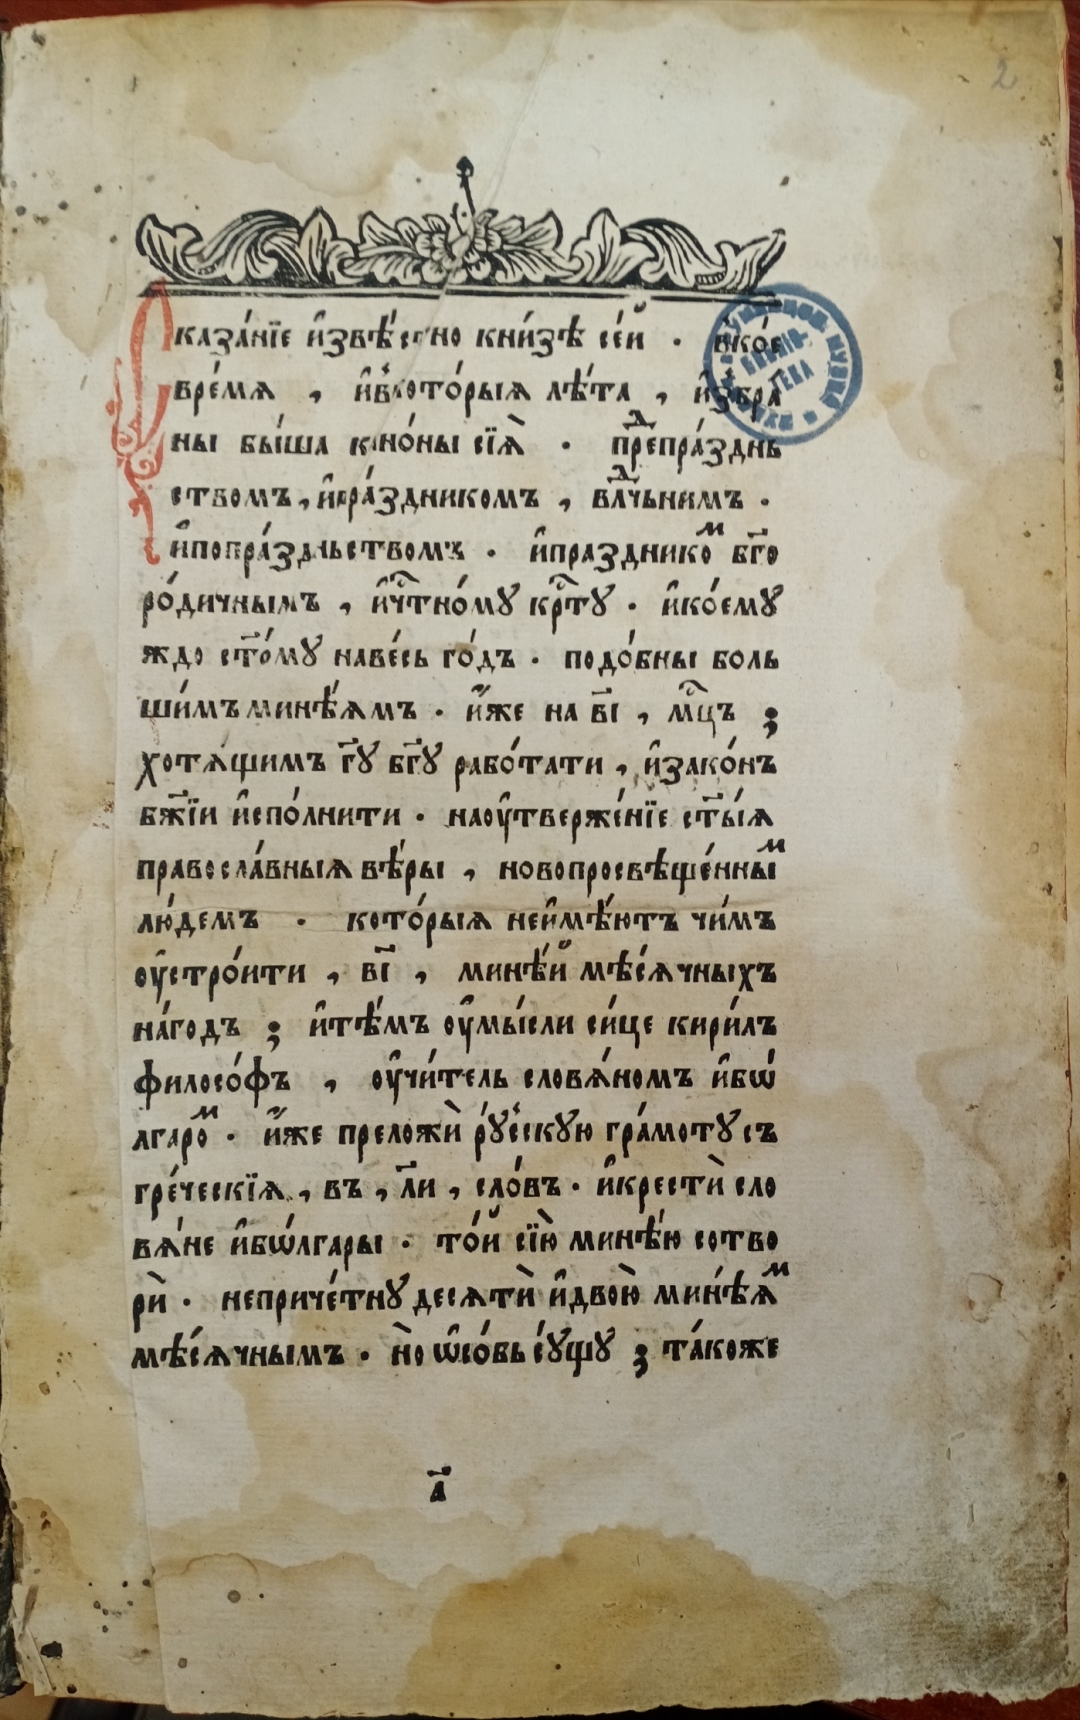 2
Сказа́нїе и҆звѣ́стно кни́зѣ се́й · вко́е
вре́мѧ , и҆вкото́рыѧ лѣ́та , и҆збра
ны бы́ша кано́ны сїѧ̀ · прⷣепра́зднь
ством̾ъ , и҆пра́здникомъ , влⷣчьнимъ ·
и҆попра́здньствомъ · и҆праздникоⷨ бг҃о
ро́дичнымъ , и҆чⷭ҇тно́му крⷭ҇ту · и҆ко́ему
ждо ст҃о́му наве́сь го́дъ · подо́бны боль
ши́мъ минѣ́ѧмъ · и҆́же на в҃і , мⷭ҇цъ ;
хотѧ́щимъ гд҃у бг҃у рабо́тати , и҆зако́нъ
бж҃їи и҆спо́лнити · наоу҆твержє́нїе ст҃ы́ѧ
правосла́вныѧ вѣ́ры , новопросвѣще́нныⷨ
лю́демъ · кото́рыѧ неи҆мѣ́ютъ чи́мъ
оу҆стро́ити , в҃і , минѣ́й мѣ́сѧчныхъ
на́годъ ; и҆тѣ́мъ оу҆мы́сли си́це кири́лъ
филосо́фъ , оу҆чи́тель словѧ́номъ и҆бѡ́
лгароⷨ · и҆́же преложѝ ру́сскую гра́моту съ
гре́ческїѧ , въ , л҃и , сло́въ · и҆крестѝ сло
вѧ́не и҆бѡ́лгары · то́й сїю̀ минѣ́ю сотво
рѝ · непричє́тну десѧтѝ и҆двою̀ минѣ́ѧⷨ
мѣ́сѧчнымъ · но̀ ѡ҆со́вь су́щу ; та́коже
а҃